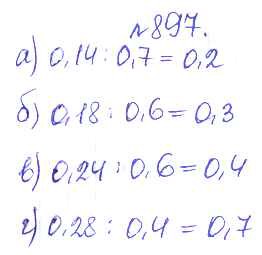 №897.
а) 0,14 : 0,7 = 0,2
б) 0,18 : 0,6 = 0,3
в) 0,24 : 0,6 = 0,4
г) 0,28 : 0,4 = 0,7